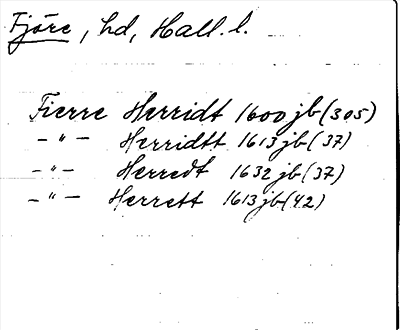 Fjäre, hd, Hall. l.
Fierre Herridt 1600 jb (305)
– " – Herridtt 1613 jb (37)
– " – Herredt 1632 jb (37)
– " – Herrett 1613 jb (42)